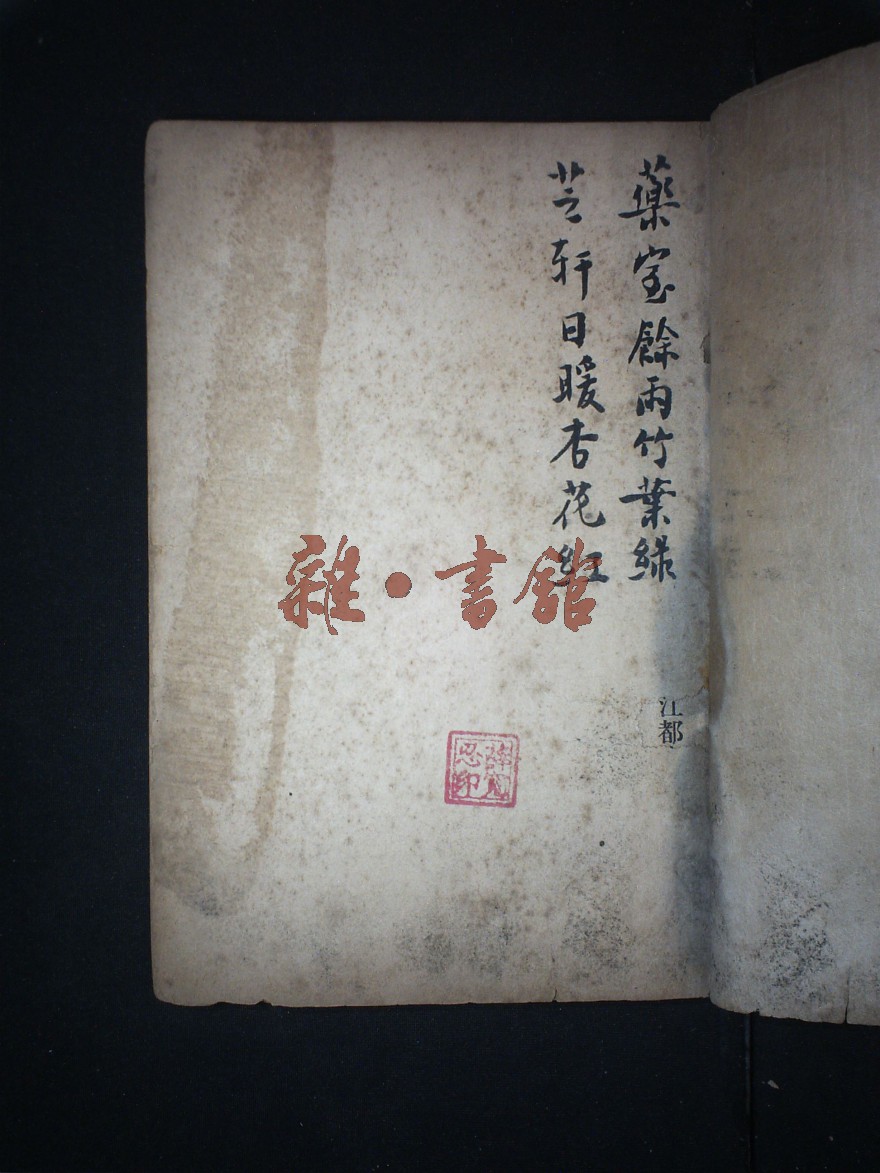 藥室餘雨竹葉綠
芝軒日暖杏花紅
江都
雜·書館